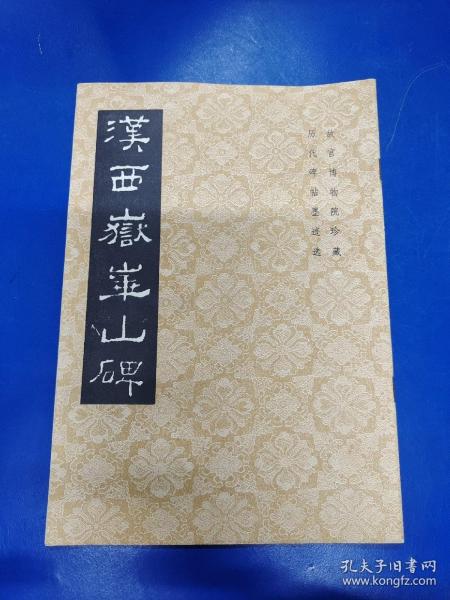 漢西嶽華山碑
故宫博物院珍藏
历代碑帖墨迹选
孔夫子旧书网
www.kongfz.com